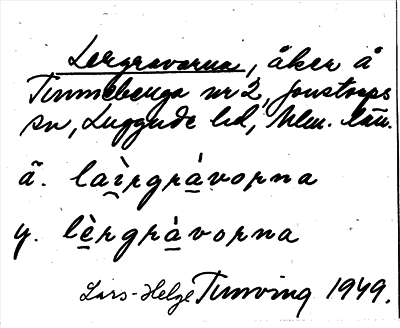 Lergravarna, åker å
Timmeberga nr 2, Jonstorps
sn, Luggude hd, Mlm. län.
ä. la͟ìrgrá͟vorna
y. lè͟rgrá͟vorna
Lars-Helge Tunving 1949.